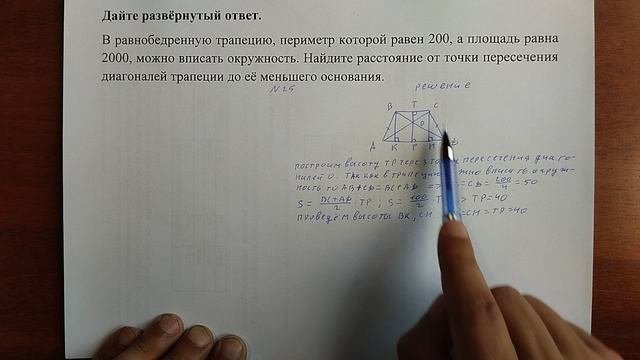 Дайте развёрнутый ответ.
В равнобедренную трапецию, периметр которой равен 200, а площадь равна
2000, можно вписать окружность. Найдите расстояние от точки пересечения
диагоналей трапеции до её меньшего основания.
N25 решение
B T C
O
A K P H
построим высоту TP через пересечения диаго-
налей O. Так как в трапецию вписать окруж-
ность то AB+CD=BC+AD => =CD= 200/4 =50
S = BC+AD/2 · TP ; S = 100/2 · TP=40
проведём высоты BK, CH =CH=TP=40